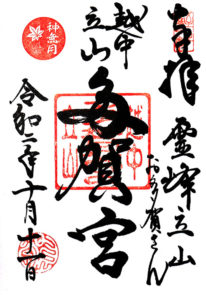 奉拝
霊峰立山
おたがさん
越中
立山
多賀宮
神無月
令和二年十月十一日